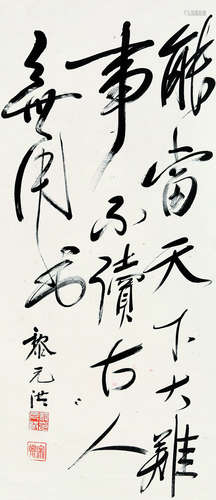 能當天下大難
事不讀古人
無用書
黎元洪